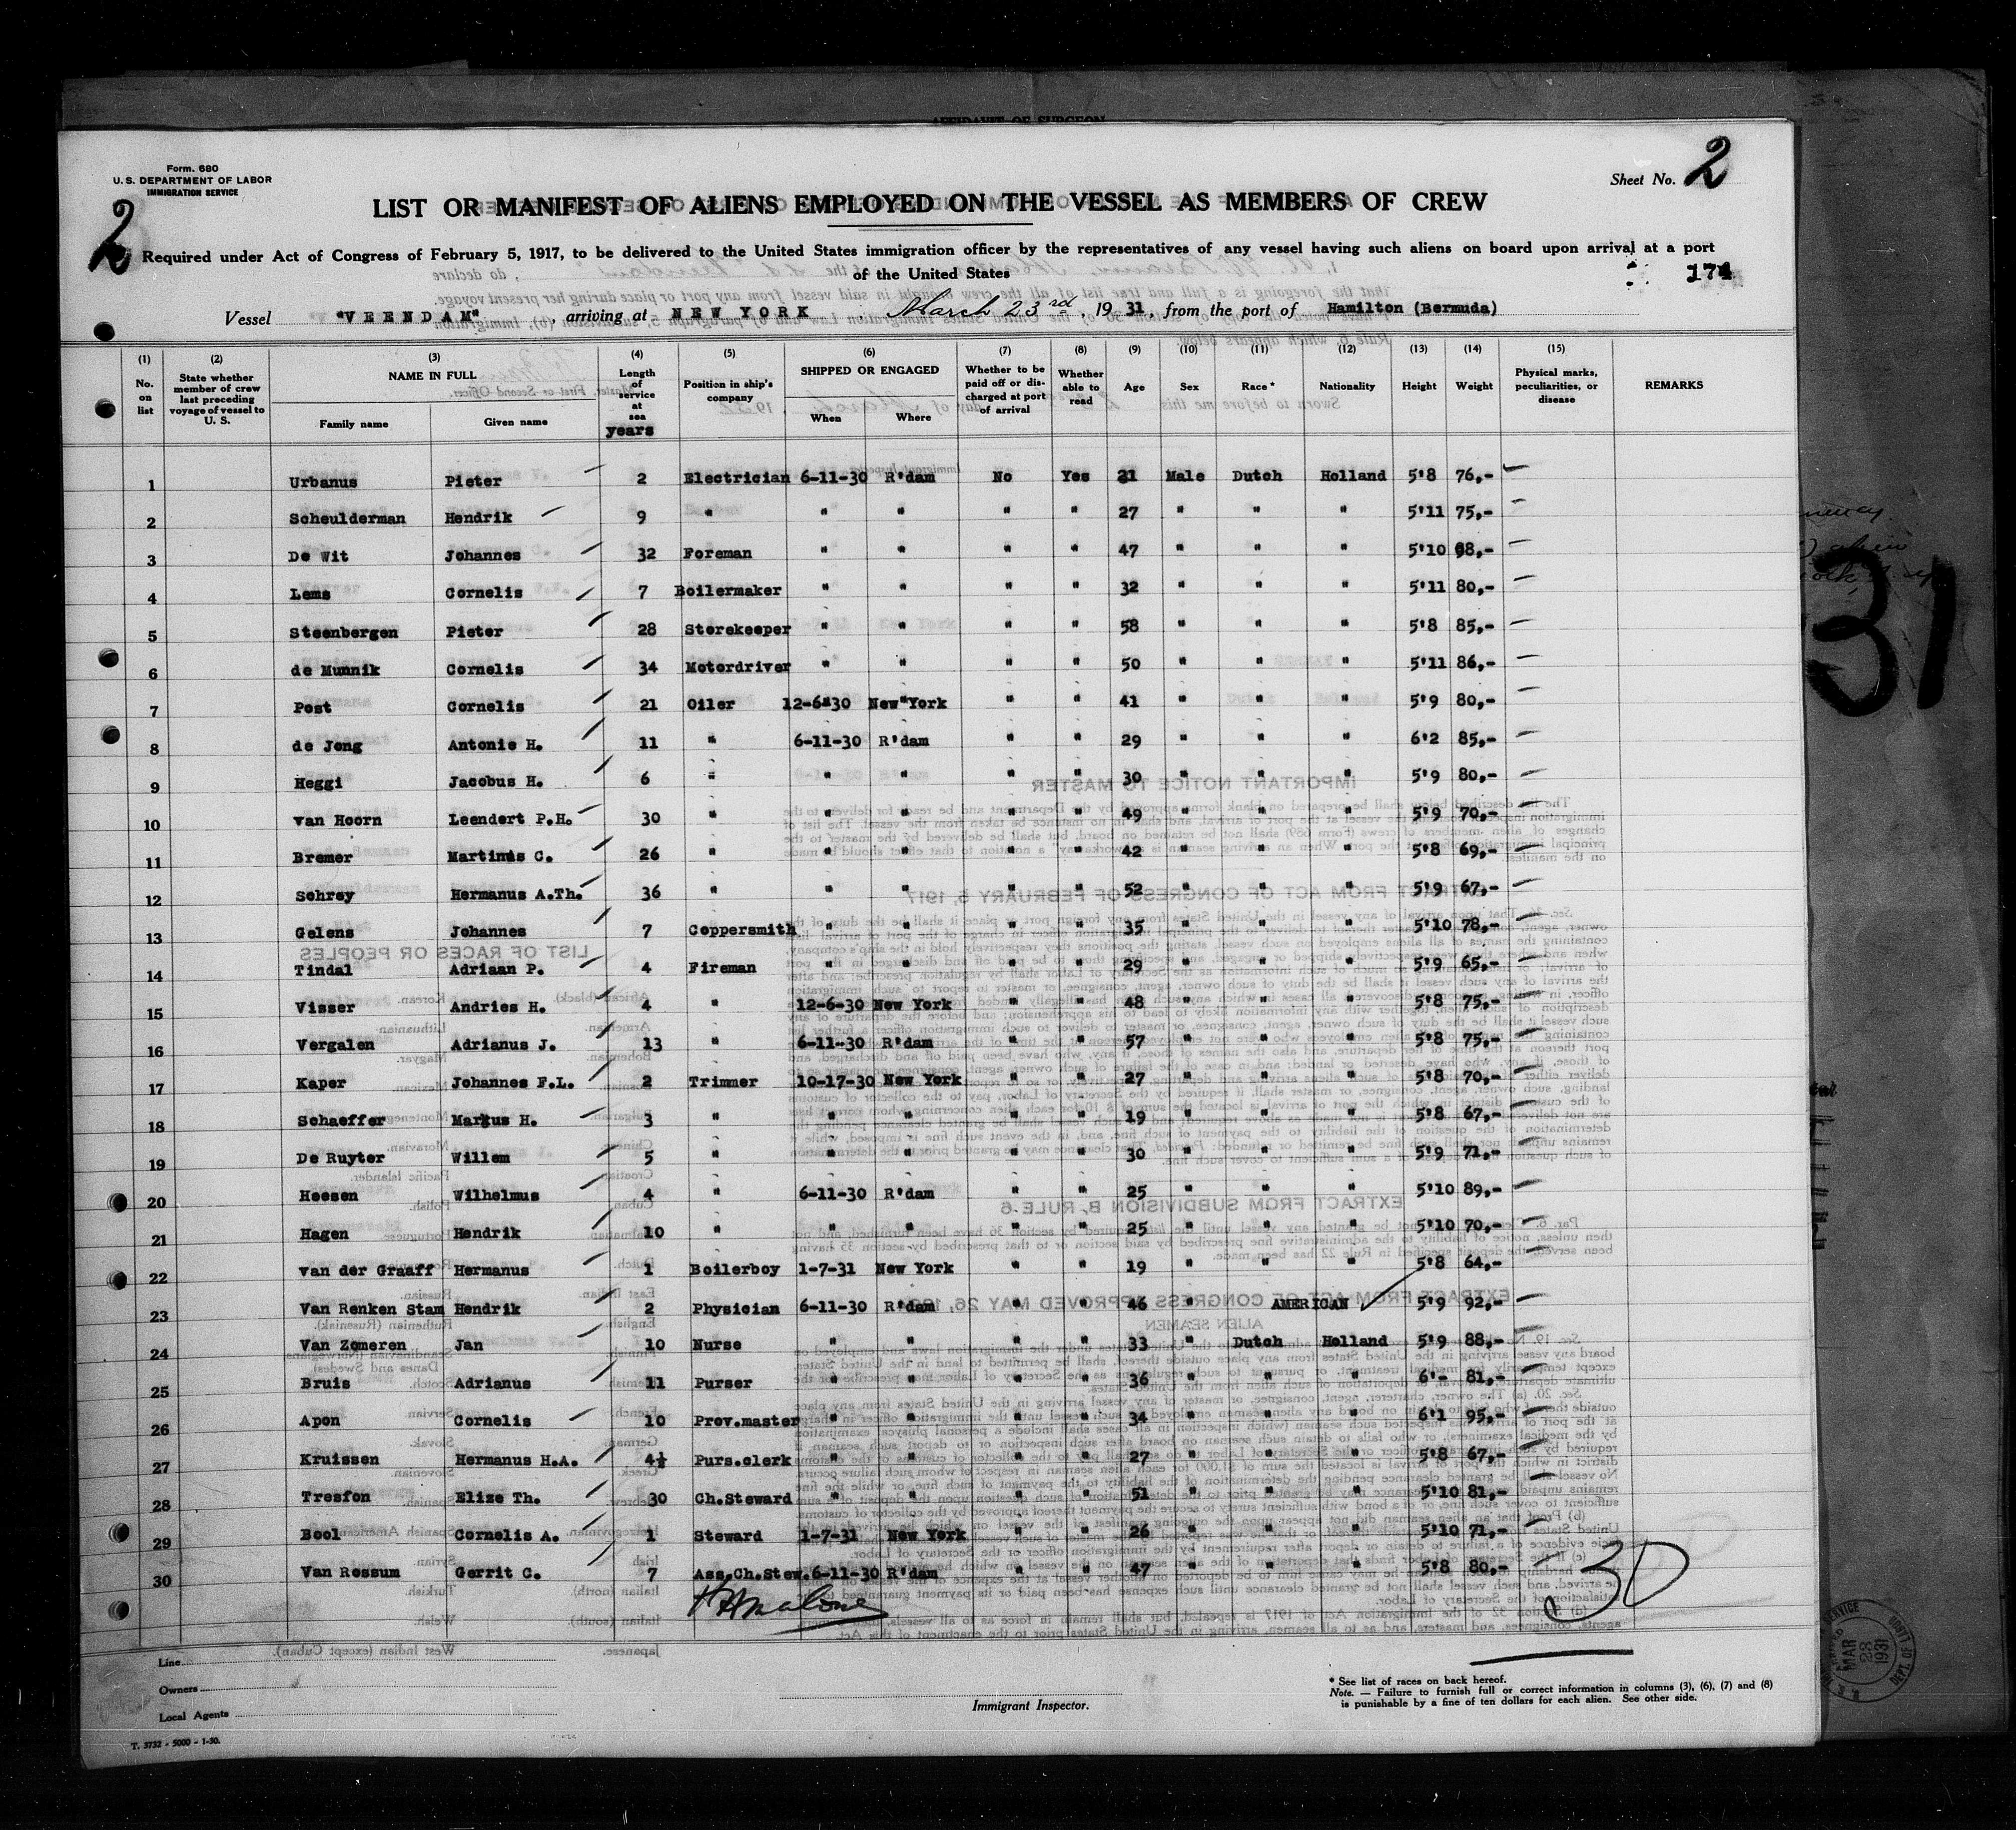 AFFIDAVIT OF SURGEON
Form. 680
U. S. DEPARTMENT OF LABOR
IMMIGRATION SERVICE
Sheet No. 2
2
LIST OR MANIFEST OF ALIENS EMPLOYED ON THE VESSEL AS MEMBERS OF CREW
Required under Act of Congress of February 5, 1917, to be delivered to the United States immigration officer by the representatives of any vessel having such aliens on board upon arrival at a port
of the United States
174
Vessel "VEENDAM", arriving at NEW YORK, March 23rd, 1931, from the port of Hamilton (Bermuda)
(1) (2) (3) (4) (5) (6) (7) (8) (9) (10) (11) (12) (13) (14) (15)
No. on list State whether member of crew last preceding voyage of vessel to U. S. NAME IN FULL Family name Given name Length of service at sea years Position in ship's company SHIPPED OR ENGAGED When Where Whether to be paid off or discharged at port of arrival Whether able to read Age Sex Race * Nationality Height Weight Physical marks, peculiarities, or disease REMARKS
1 Urbanus Pieter 2 Electrician 6-11-30 R'dam No Yes 21 Male Dutch Holland 5'8 76,-
2 Scheulderman Hendrik 9 " " " " " 27 " " " 5'11 75,-
3 De Wit Johannes 32 Foreman " " " " 47 " " " 5'10 98,-
4 Lems Cornelis 7 Boilermaker " " " " 32 " " " 5'11 80,-
5 Steenbergen Pieter 28 Storekeeper " " " " 58 " " " 5'8 85,-
6 de Munnik Cornelis 34 Motordriver " " " " 50 " " " 5'11 86,-
7 Post Cornelis 21 Oiler 12-6-30 New York " " 41 " " " 5'9 80,-
8 de Jong Antonie H. 11 " 6-11-30 R'dam " " 29 " " " 6'2 85,-
9 Heggi Jacobus H. 6 " " " " " 30 " " " 5'9 80,-
10 van Hoorn Leendert P.H. 30 " " " " " 49 " " " 5'9 70,-
11 Bremer Martinus C. 26 " " " " " 42 " " " 5'8 69,-
12 Schrey Hermanus A.Th. 36 " " " " " 52 " " " 5'9 67,-
13 Gelens Johannes 7 Coppersmith " " " " 35 " " " 5'10 78,-
14 Tindal Adriaan P. 4 Fireman " " " " 29 " " " 5'9 65,-
15 Visser Andries H. 4 " 12-6-30 New York " " 48 " " " 5'8 75,-
16 Vergalen Adrianus J. 13 " 6-11-30 R'dam " " 57 " " " 5'8 75,-
17 Kaper Johannes F.L. 2 Trimmer 10-17-30 New York " " 27 " " " 5'8 70,-
18 Schaeffer Markus H. 3 " " " " " 19 " " " 5'8 67,-
19 De Ruyter Willem 5 " " " " " 30 " " " 5'9 71,-
20 Heesen Wilhelmus 4 " 6-11-30 R'dam " " 25 " " " 5'10 89,-
21 Hagen Hendrik 10 " " " " " 25 " " " 5'10 70,-
22 van der Graaff Hermanus 1 Boilerboy 1-7-31 New York " " 19 " " " 5'8 64,-
23 Van Renken Stam Hendrik 2 Physician 6-11-30 R'dam " " 46 " AMERICAN 5'9 92,-
24 Van Zomeren Jan 10 Nurse " " " " 33 " Dutch Holland 5'9 88,-
25 Bruis Adrianus 11 Purser " " " " 36 " " " 6'- 81,-
26 Apon Cornelis 10 Prov.master " " " " 34 " " " 6'1 95,-
27 Kruissen Hermanus H.A. 4½ Purs.clerk " " " " 27 " " " 5'8 67,-
28 Tresfon Elize Th. 30 Ch.Steward " " " " 51 " " " 5'10 81,-
29 Bool Cornelis A. 1 Steward 1-7-31 New York " " 26 " " " 5'10 71,-
30 Van Rossum Gerrit C. 7 Ass.Ch.Stew. 6-11-30 R'dam " " 47 " " " 5'8 80,-
30
31
Line
Owners
Local Agents
Immigrant Inspector.
* See list of races on back hereof.
Note. — Failure to furnish full or correct information in columns (3), (6), (7) and (8)
is punishable by a fine of ten dollars for each alien. See other side.
T. 3732 - 5000 - 1-30.
MAR 23 1931